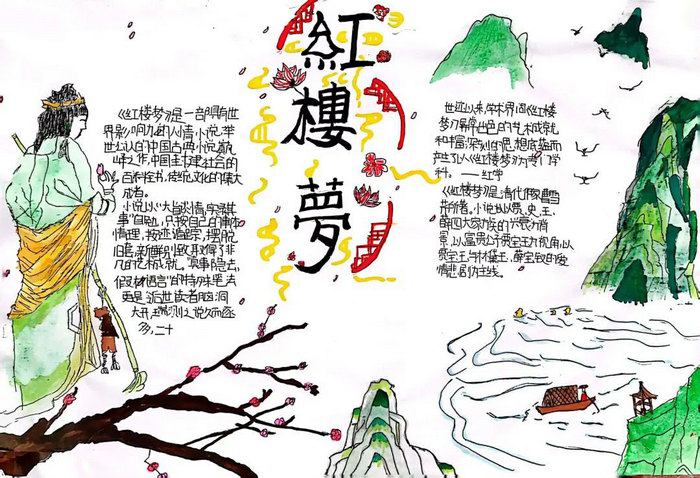 紅樓夢
《红楼梦》是一部具有世
界影响力的人情小说，举
世公认的中国古典小说巅
峰之作，中国封建社会的
百科全书，传统文化的集大
成者。
小说以"大旨谈情，实录其
事"自勉，只按自己的事体
情理，按迹循踪，摆脱
旧套，新鲜别致，取得了非
凡的艺术成就。真事隐去，
假语村言"的特殊笔法
更是 后世读者脑洞
大开，揣测之说久而遂
多，二十
世纪以来，学术界因《红楼
梦》异常出色的艺术成就
和丰富深刻的思想底蕴而
产生了以《红楼梦》为 专门学
科。——红学
《红楼梦》是清代作家曹雪
芹所著。小说以贾、史、王、
薛四大家族的兴衰为背
景，以富贵公子贾宝玉为视角，以
贾宝玉与林黛玉、薛宝钗的爱
情悲剧为主线。